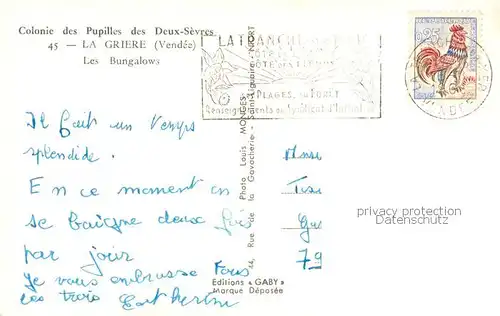 Colonie des Pupilles des Deux-Sèvres
45 — LA GRIERE (Vendée)
Les Bungalows
LA TRANCHE
PLAGES, FORET
Renseignements au Syndicat d'Initiative
0,25
Il fait un temps
splendide.
En ce moment on
se baigne deux fois
par jour
Je vous embrasse Tous
les trois Catherine
79
44, Rue de la Gavacherie - Saint-Liguaire - NIORT
Photo Louis MONGES
privacy protection
Datenschutz
Editions « GABY »
Marque Déposée